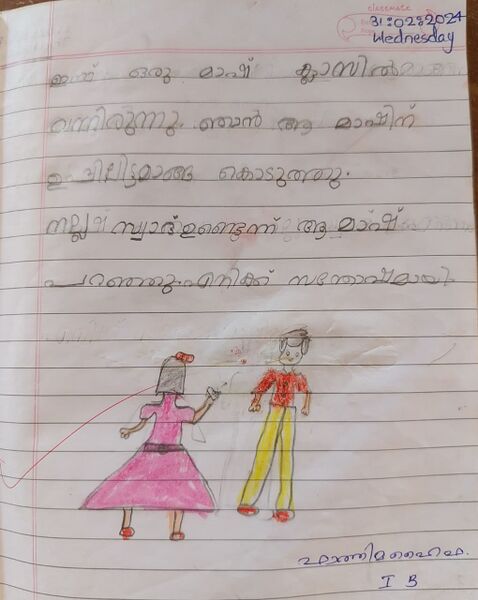 classmate
31:02:2024
Wednesday
ഇന്ന് ഒരു മാഷ് ക്ലാസിൽ
വന്നിരുന്നു. ഞാൻ ആ മാഷിന്
ഉപ്പിലിട്ടമാങ്ങ കൊടുത്തു.
നല്ല സ്വാദ്ഉണ്ടെന്ന് ആ മാഷ്
പറഞ്ഞു.എനിക്ക് സന്തോഷമായി.
I B